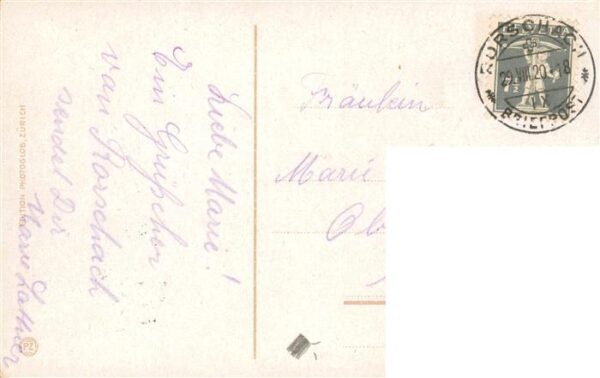 Liebe Marie!
Ein Grüßchen
von Rorschach
sendet Dir
Marie
EDITION PHOTOGLOB, ZÜRICH
PZ
Fräulein
Marie
RORSCHACH
29.VIII.20-18
BRIEFPOST